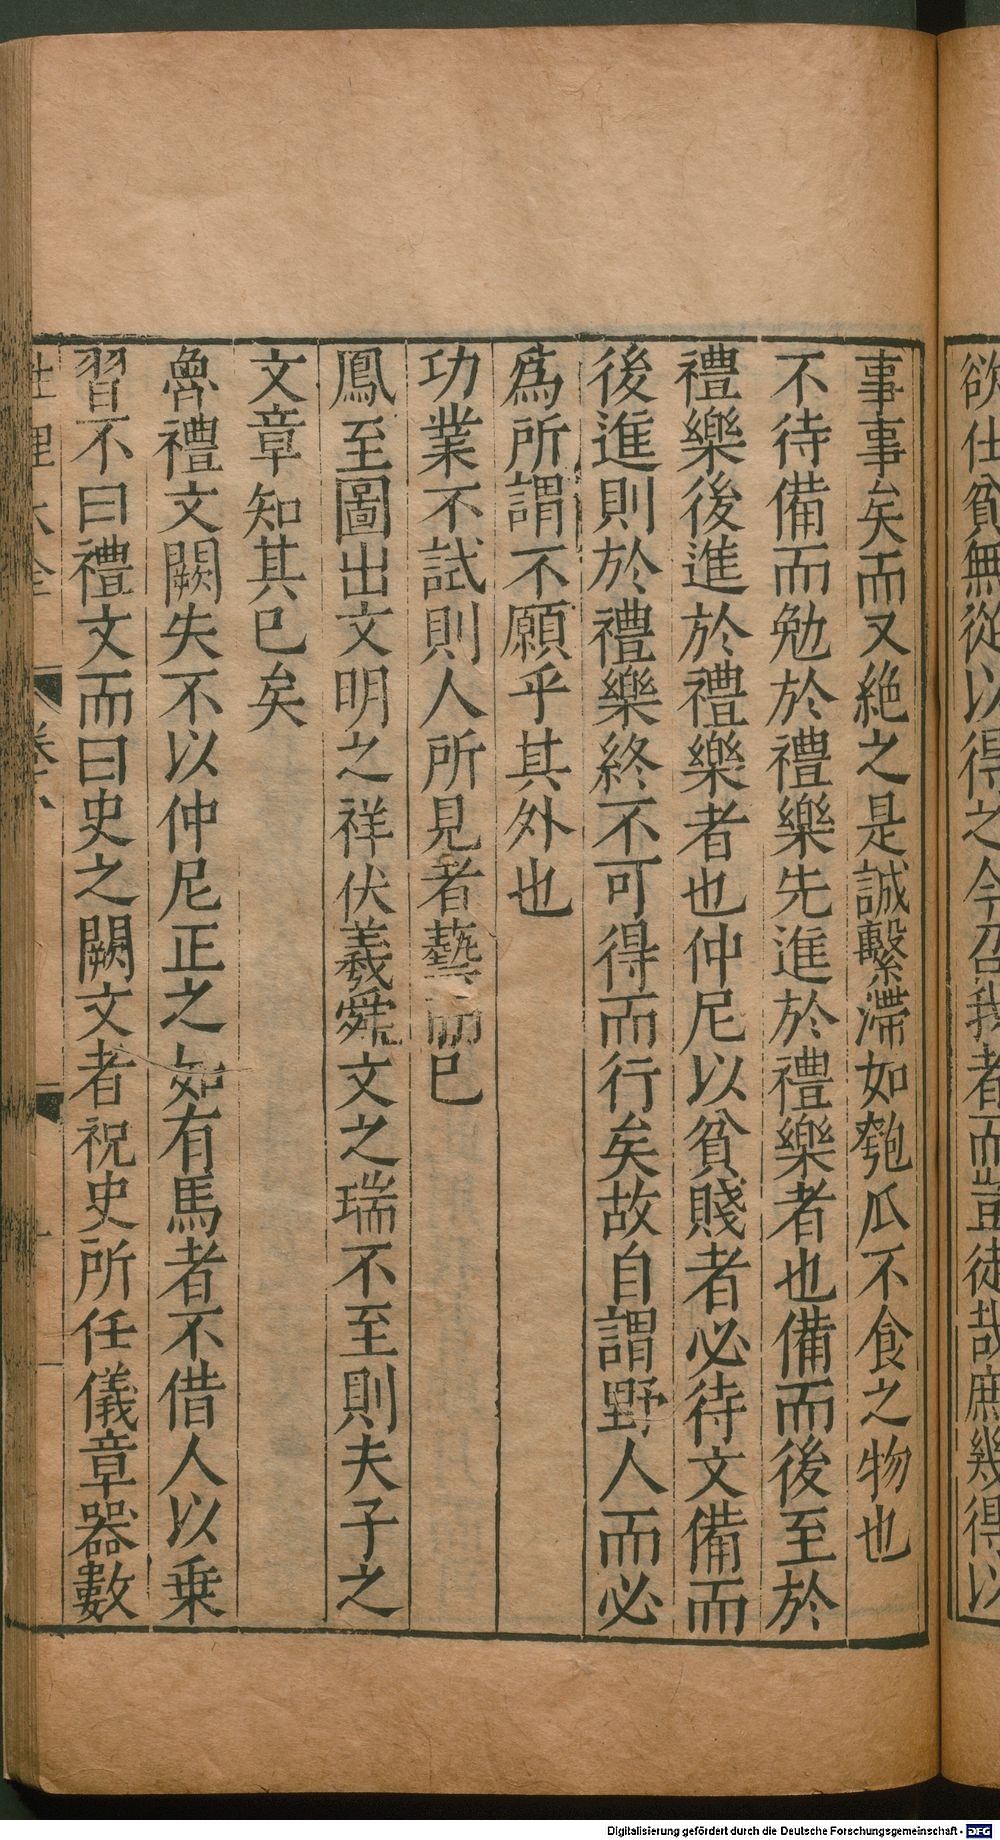 欲仕貧無從以得之今召我者而豈徒哉庶幾得以
事事矣而又絶之是誠繫滯如匏瓜不食之物也
不待備而勉於禮樂先進於禮樂者也備而後至於
禮樂後進於禮樂者也仲尼以貧賤者必待文備而
後進則於禮樂終不可得而行矣故自謂野人而必
爲所謂不願乎其外也
功業不試則人所見者藝而已
鳳至圖出文明之祥伏羲舜文之瑞不至則夫子之
文章知其已矣
魯禮文闕失不以仲尼正之如有馬者不借人以乗
習不曰禮文而曰史之闕文者祝史所任儀章器數
性理大全 卷六
Digitalisierung gefördert durch die Deutsche Forschungsgemeinschaft - DFG